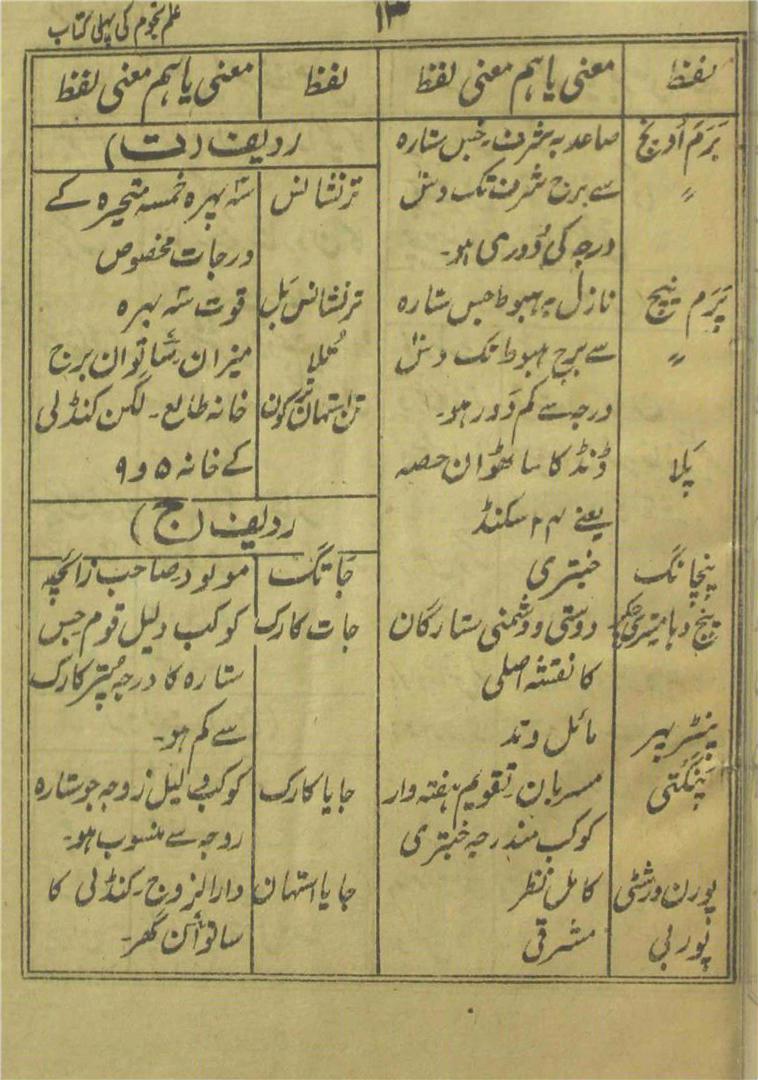 علم نجوم کی پہلی کتاب
۱۳
لفظ معنی یا ہم معنی لفظ
پَرَم اُوچ صاعد بہ شرف۔ جس ستارہ
〃 سے برج شرف تک دس
درجہ کی دُوری ہو۔
پَرَم نیچ نازل بہ ہبوط جس ستارہ
〃 سے برج ہبوط تک دس
درجہ سے کم دَور ہو۔
پَلا ڈنڈ کا ساٹھواں حصہ
یعنے ۲۴ سکنڈ
پنچانگ جنتری
پنچ دہا میتری چکر دوستی و دشمنی ستارگان
کا نقشہ اصلی
مائل وتد
پَنگتی مسربان۔ تقویم ہفتہ وار
کوکب مندرجہ جنتری
پورن درشٹی کامل نظر
پُوربی مشرقی
لفظ معنی یا ہم معنی لفظ
ردیف (ت)
ترنشانس سہ بہرہ خمسہ متحیرہ کے
درجات مخصوص
ترنشانس بَل قوت سہ بہرہ
تُلا میزان۔ ساتواں برج
ترن استہان ترکون خانہ طالع۔ لکن کنڈلی
کے خانہ ۵ و ۹
ردیف (ج)
جَاتک مولود۔ صاحب زائچہ
جات کارک کوکب دلیل قوم جس
ستارہ کا درجہ پُتر کارک
سے کم ہو۔
جایا کارک کوکب دلیل زوجہ جو ستارہ
زوجہ سے منسوب ہو۔
جایا استہان دارالزوج۔ کنڈلی کا
ساتواں گھر۔